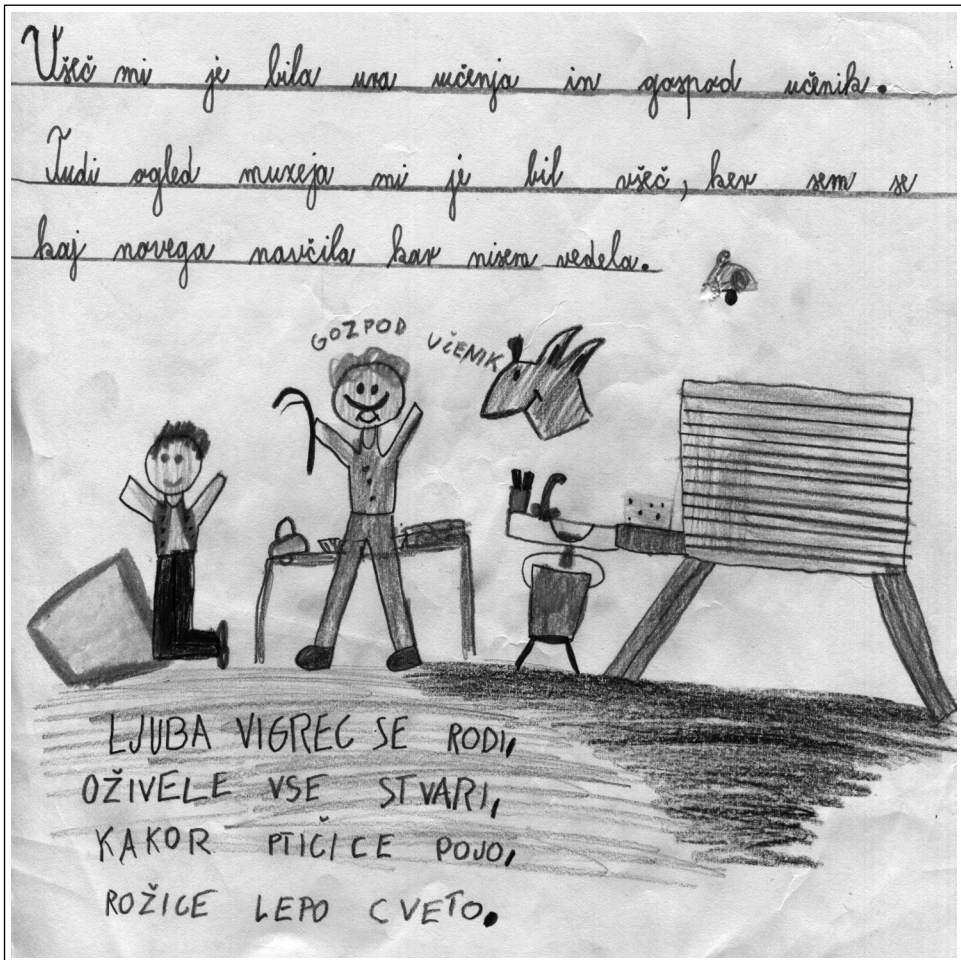 Všeč mi je bila ura učenja in gospod učenik.
Tudi ogled muzeja mi je bil všeč, ker sem se
kaj novega navčila kar nisem vedela.
GOZPOD UČENIK
LJUBA VIGREC SE RODI,
OŽIVELE VSE STVARI,
KAKOR PTIČICE POJO,
ROŽICE LEPO CVETO.